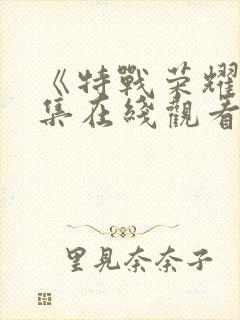 《特戰荣耀
集在綫觀看
里見奈奈子